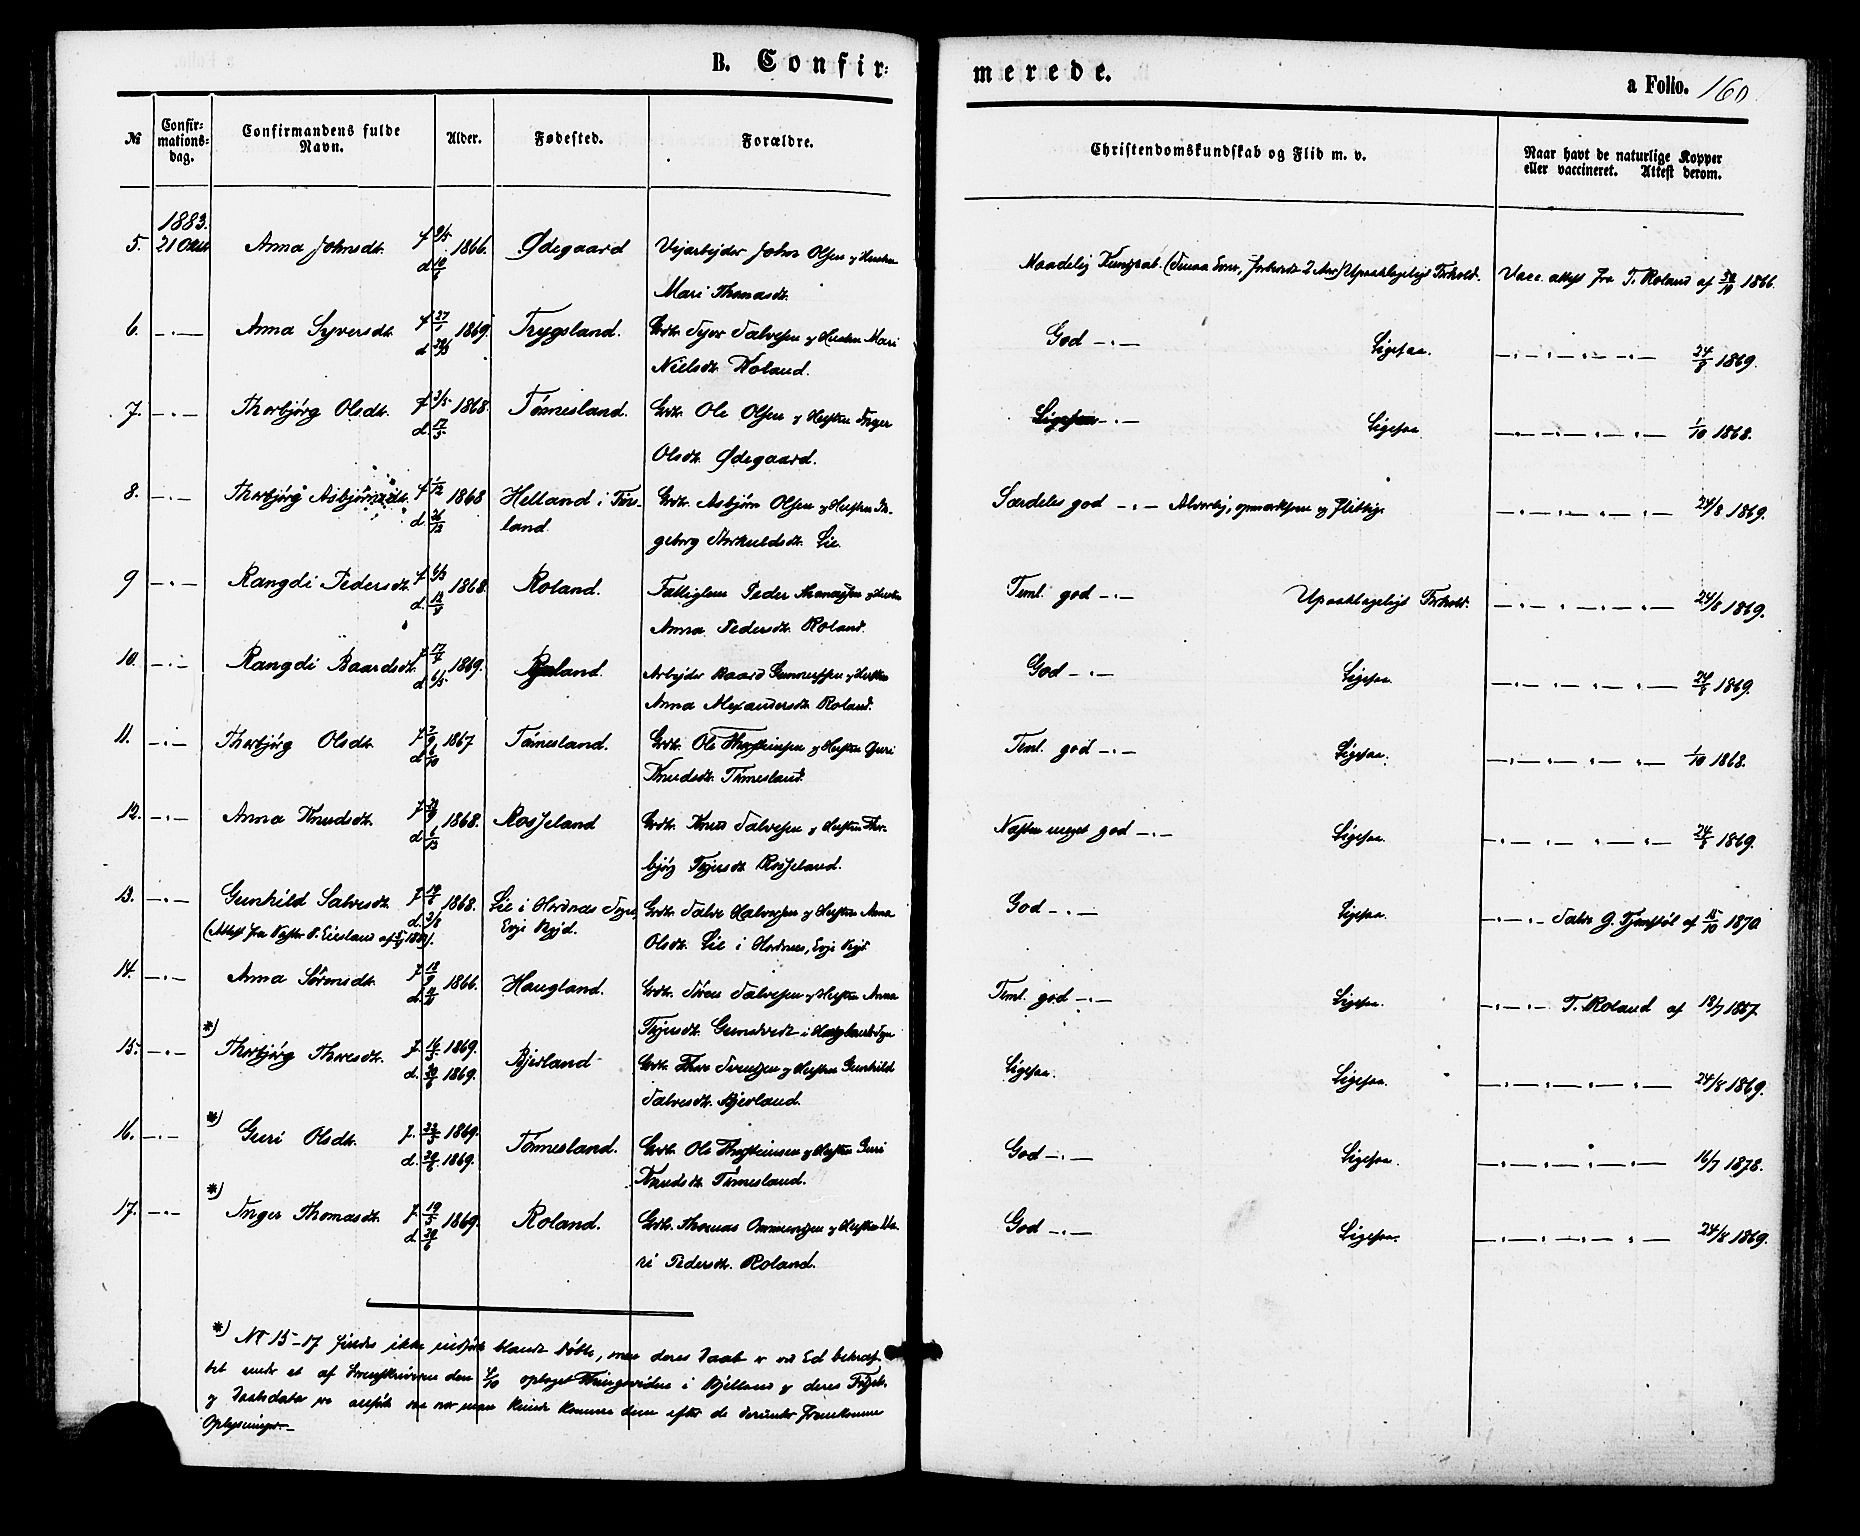 B. Confir-
merede.
a Folio. 160
№
Confir-
mations-
dag.
Confirmandens fulde
Navn.
Alder.
Fødested.
Forældre.
Christendomskundskab og Flid m. v.
Naar havt de naturlige Kopper
eller vaccineret. Attest derom.
1883.
5. 21 Oktb. Anna Johnsdt. f 9/5 1866. Ødegaard Vejarbejder John Olsen og Hustru
d
Mari Thomasdt.
Maadelig Kundskab. 2 Aar) Upaaklageligt Forhold. Vacc. attest fra T. Roland af 1866.
6. —.— Anna Syversdt. f 27/1 1869. Trygsland. Grdbr. Syver Salvesen og Hustru Mari
d
Nielsdt. Roland.
God —.— Ligesaa. —.—.—.—.— 24/8 1869.
7. —.— Thorbjørg Olsdt. f 2/5 1868. Tønnesland. Grdbr. Ole Olsen og Hustru Inger
d. 17/5
Olsdt. Ødegaard.
Ligesaa —.— Ligesaa —.—.—.—.— 1/10 1868.
8. —.— Thorbjørg Asbjørnsdt. f 1/12 1868 Helland i Tøns- Grdbr. Asbjørn Olsen og Hustru In-
d 26/12 land.
geborg Thorkeldsdt. Lie.
Særdeles god —.— Alvorlig, opmærksom og flittig. —.—.—.—.— 24/8 1869.
9 —.— Rangdi Pedersdt. f 6/3 1868. Roland. Fattiglem Peder Thomassen og Hustru
d.
Anna Pedersdt. Roland.
Teml. god —.— Upaaklageligt Forhold. —.—.—.—.— 24/8 1869.
10. —.— Rangdi Baardsdt. f 1869. land. Arbejder Baard Gunnersen og Hustru
d 6/5
Anna Alexandersdt. Roland.
God —.— Ligesaa. —.—.—.—.— 24/8 1869.
11. —.— Thorbjørg Olsdt. f 1867 Tønnesland. Grdbr. Ole Thorsteinsen og Hustru Guri
d
Knudsdt. Tønnesland.
Teml. god —.— Ligesaa. —.—.—.—.— 1/10 1868.
12. —.— Anna Knudsdt. f 1868. Rosseland Grdbr. Knud Salvesen og Hustru Thor-
d
bjørg Terjesdt. Rosseland.
Næsten meget god —.— Ligesaa. —.—.—.—.— 24/8 1869.
13. —.— Gunhild Salvesdt. f 1868. Lie i Hordnæs Sogn, Grdbr. Salve Halvorsen og Hustru Anna
d. 2/8 Evje Bygd.
(Attest fra Pastor Eiesland af 1883).
Olsdt. Lie i Hordnæs, Evje Bygd
God —.— Ligesaa. —.—.— Salve G. af 15/10 1870
14. —.— Anna Sørensdt. f 18/9 1866. Haugland. Grdbr. Søren Salvesen og Hustru Anna
d.
Terjesdt. i Sogn
Teml. god —.— Ligesaa. —.—.— T. Roland af 18/7 1867.
*)
15. —.— Thorbjørg Thoresdt. f. 1869. Bjerland Grdbr. Thore Svendsen og Hustru Gunhild
d. 20/6 1869.
Salvesdt. Bjerland.
Ligesaa. Ligesaa. —.—.—.—.— 24/8 1869.
*)
16. —.— Guri Olsdt. f. 1869. Tønnesland. Grdbr. Ole Thorsteinsen og Hustru Guri
d. 20/6 1869.
Knudsdt. Tønnesland.
God —.— Ligesaa. —.—.—.—.— 16/7 1878.
*)
17. —.— Inger Thomasdt. f. 19/5 1869. Roland. Grdbr. Thomas Ommundsen og Hustru Ma-
d. 20/6
ri Pedersdt. Roland.
God —.— Ligesaa. —.—.—.—.— 24/8 1869.
*) № 15–17 findes ikke indført blandt døbte, men deres Daab er ved Ed bekræf-
tet under et af Sorenskriveren den optaget Thingsvidne i Bjelland og deres Føds.
og Daabsdata er anført saa nær man kunde komme dem efter de derunder fremkomne
Oplysninger.—